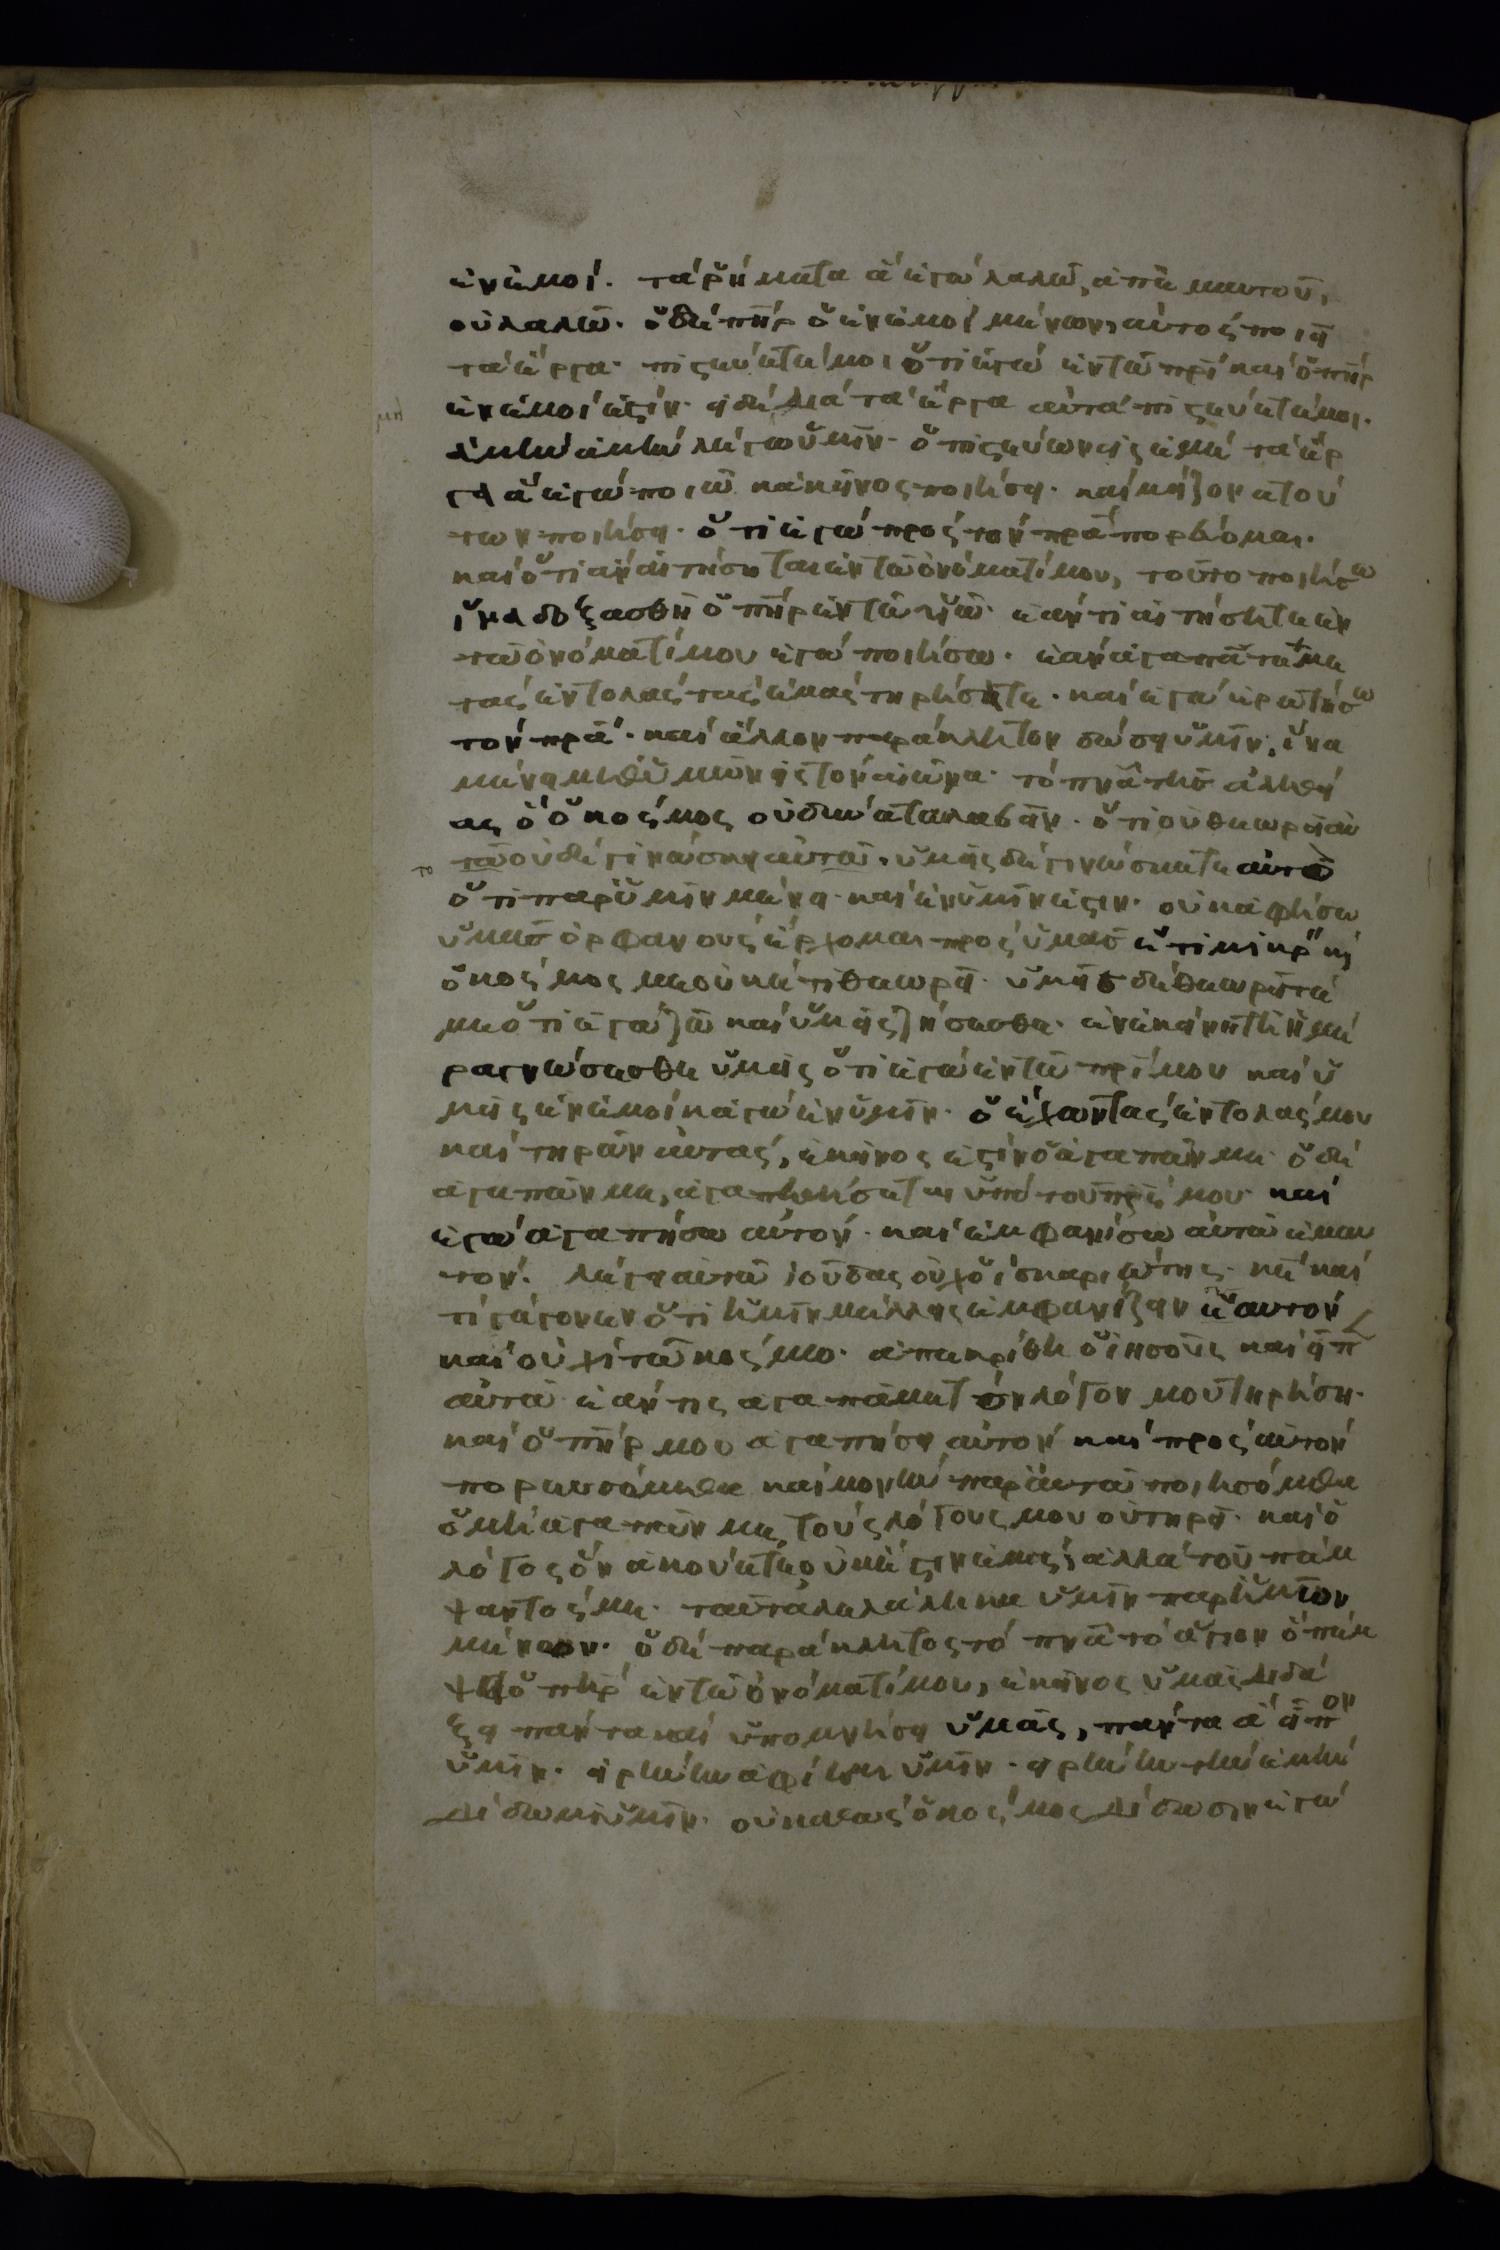 ἐν ἐμοί. τὰ ῥήματα ἃ ἐγὼ λαλῶ, ἀπ' ἐμαυτοῦ,
οὐ λαλῶ. ὁ δὲ πηρ ὁ ἐν ἐμοὶ μένων, αὐτὸς ποιεῖ
τὰ ἔργα. πιστεύετέ μοι ὅτι ἐγὼ ἐν τῷ πρι καὶ ὁ πηρ
ἐν ἐμοί ἐστιν. εἰ δὲ διὰ τὰ ἔργα αὐτὰ πιστεύετέ μοι.
ἀμὴν ἀμὴν λέγω ὑμῖν. ὁ πιστεύων εἰς ἐμὲ τὰ ἔρ
γα ἃ ἐγὼ ποιῶ κἀκεῖνος ποιήσει. καὶ μείζονα τού
των ποιήσει. ὅτι ἐγὼ πρὸς τὸν πρα πορεύομαι.
καὶ ὅτι ἂν αἰτήσηται ἐν τῷ ὀνόματί μου, τοῦτο ποιήσω
ἵνα δοξασθῇ ὁ πηρ ἐν τῷ υἱῷ. ἐάν τι αἰτήσητε ἐν
τῷ ὀνόματί μου ἐγὼ ποιήσω. ἐὰν ἀγαπᾶτέ με
τὰς ἐντολὰς τὰς ἐμὰς τηρήσετε. καὶ ἐγὼ ἐρωτήσω
τὸν πρα. καὶ ἄλλον παράκλητον δώσει ὑμῖν, ἵνα
μένει μεθ' ὑμῶν εἰς τὸν αἰῶνα. τὸ πνα τῆς ἀληθεί
ας ὃ ὁ κόσμος οὐ δύναται λαβεῖν. ὅτι οὐ θεωρεῖ αὐ
τῷ οὐδὲ γινώσκει αὐτῷ. ὑμεῖς δὲ γινώσκετε αὐτὸ
ὅτι παρ' ὑμῖν μένει. καὶ ἐν ὑμῖν ἐστιν. οὐκ ἀφήσω
ὑμᾶς ὀρφανοὺς ἔρχομαι πρὸς ὑμᾶς ἔτι μικρὸν καὶ
ὁ κόσμος με οὐκέτι θεωρεῖ. ὑμεῖς δὲ θεωρεῖτέ
με ὅτι ἐγὼ ζῶ καὶ ὑμεῖς ζήσεσθε. ἐν ἐκείνῃ τῇ ἡμέ
ρα γνώσεσθε ὑμεῖς ὅτι ἐγὼ ἐν τῷ πρι μου καὶ ὑ
μεῖς ἐν ἐμοὶ κἀγὼ ἐν ὑμῖν. ὁ ἔχων τὰς ἐντολάς μου
καὶ τηρῶν αὐτάς, ἐκεῖνός ἐστιν ὁ ἀγαπῶν με ὁ δὲ
ἀγαπῶν με, ἀγαπηθήσεται ὑπὸ τοῦ πρς μου καὶ
ἐγὼ ἀγαπήσω αὐτόν. καὶ ἐμφανίσω αὐτῷ ἐμαυ
τόν. λέγει αὐτῷ ἰούδας οὐχ ὁ ἰσκαριώτης. κε καὶ
τί γέγονεν ὅτι ἡμῖν μέλλεις ἐμφανίζειν σεαυτόν
καὶ οὐχὶ τῷ κόσμο. ἀπεκρίθη ὁ ἰησοῦς καὶ εἶπ
αὐτῷ ἐάν τις ἀγαπᾷ με τὸν λόγον μου τηρήσῃ.
καὶ ὁ πηρ μου ἀγαπήσει αὐτόν καὶ πρὸς αὐτόν
πορευσόμεθα καὶ μονὴν παρ' αὐτῷ ποιησόμεθα
ὁ μὴ ἀγαπῶν με, τοὺς λόγους μου οὐ τηρεῖ. καὶ ὁ
λόγος ὃν ἀκούετε, οὐκ ἔστιν ἐμός, ἀλλὰ τοῦ πέμ
ψαντός με. ταῦτα λελάληκα ὑμῖν παρ' ὑμῖον
μένων. ὁ δὲ παράκλητος τὸ πνα τὸ ἅγιον ὃ πέμ
ψει ὁ πηρ ἐν τῷ ὀνόματί μου, ἐκεῖνος ὑμᾶς διδά
ξει πάντα καὶ ὑπομνήσει ὑμᾶς, πάντα ἃ εἶπον
ὑμῖν. εἰρήνην ἀφίημι ὑμῖν. εἰρήνην τὴν ἐμὴν
δίδωμι ὑμῖν. οὐ καθὼς ὁ κόσμος δίδωσιν ἐγὼ